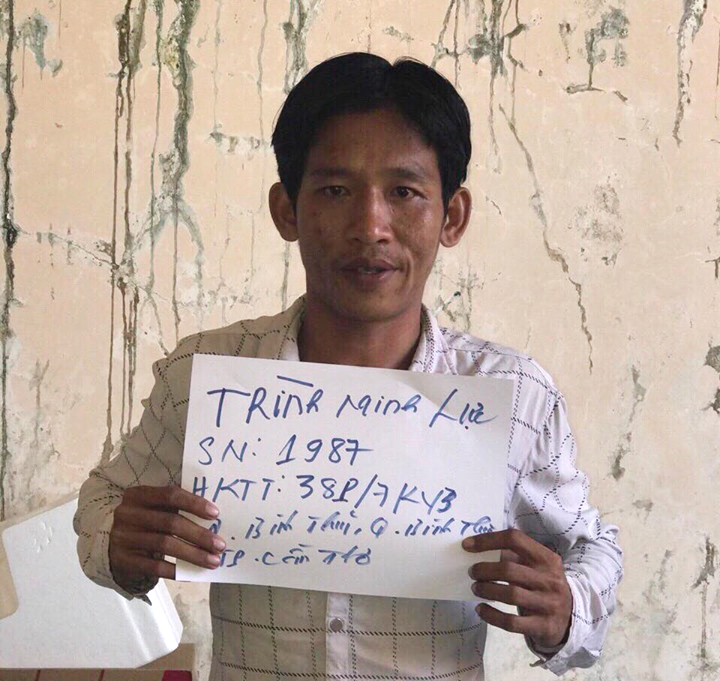 TRỊNH MINH LỰC
SN: 1987
HKTT: 38P/7 KV3
P. Bình Thuỷ, Q. Bình Thuỷ
TP. Cần Thơ